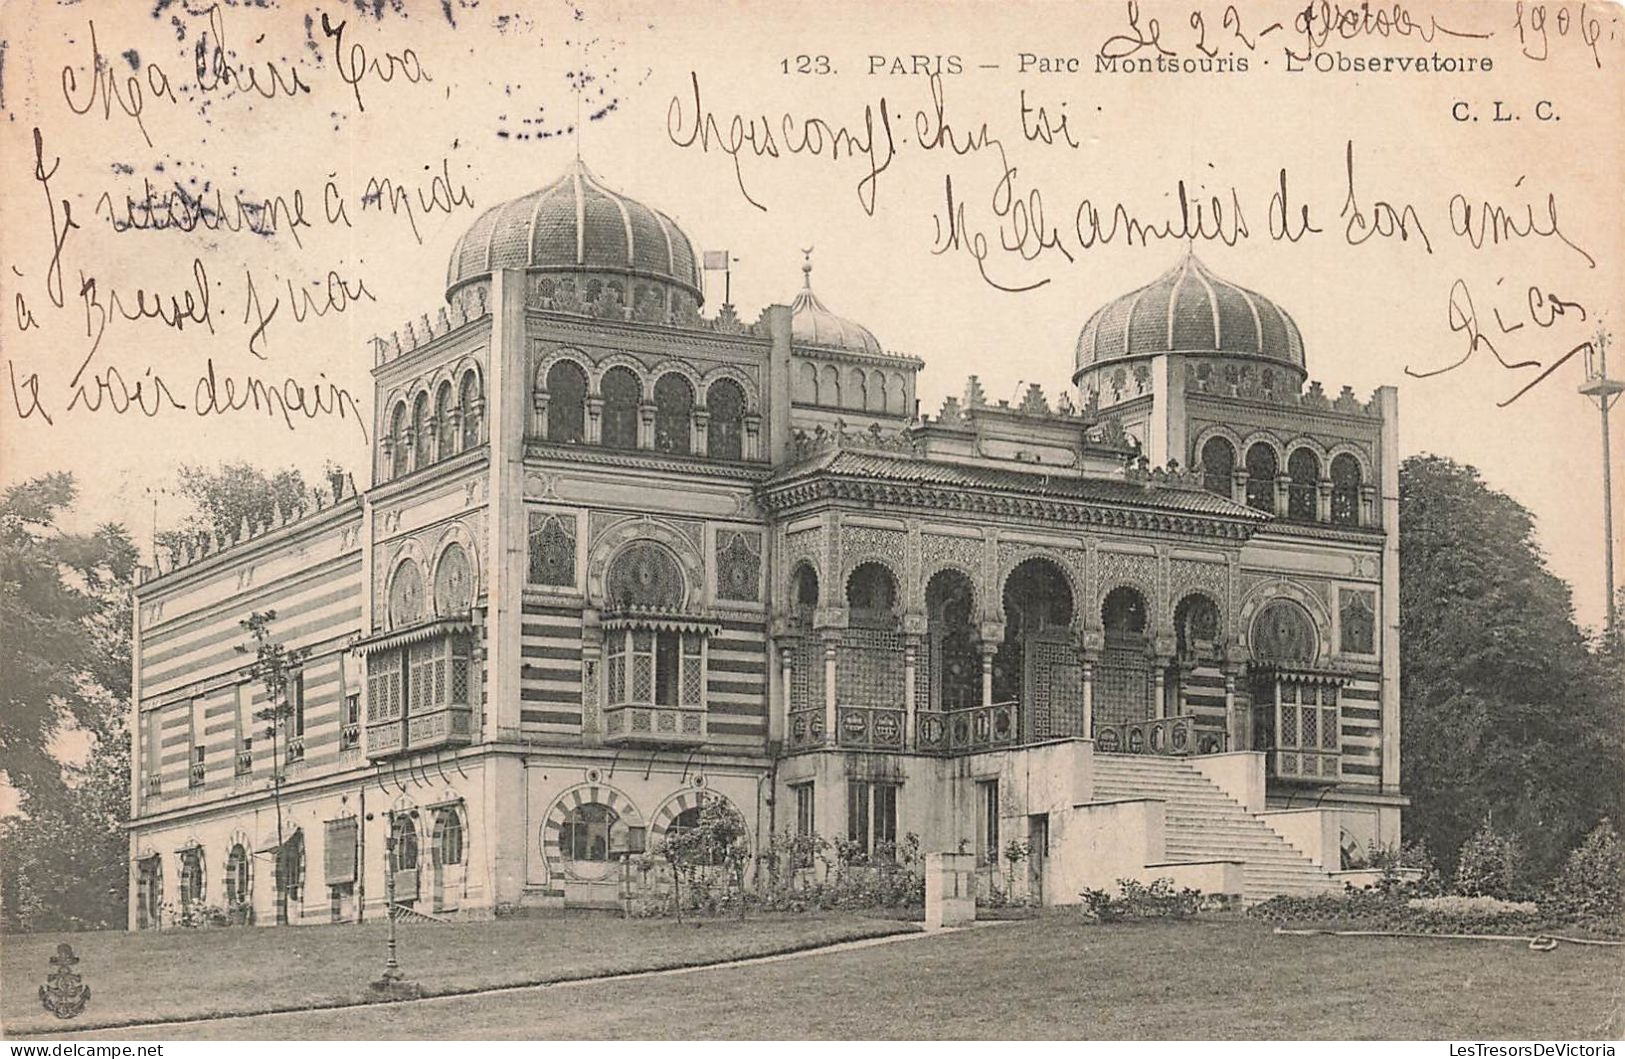 Le 22 - Octobre 1906.
123. PARIS - Parc Montsouris · L'Observatoire
C. L. C.
Ma chère Eva,
Je retourne à midi
à Bruxel. j'irai
te voir demain,
chez toi.
Mille amitiés de ton amie
LesTresorsDeVictoria